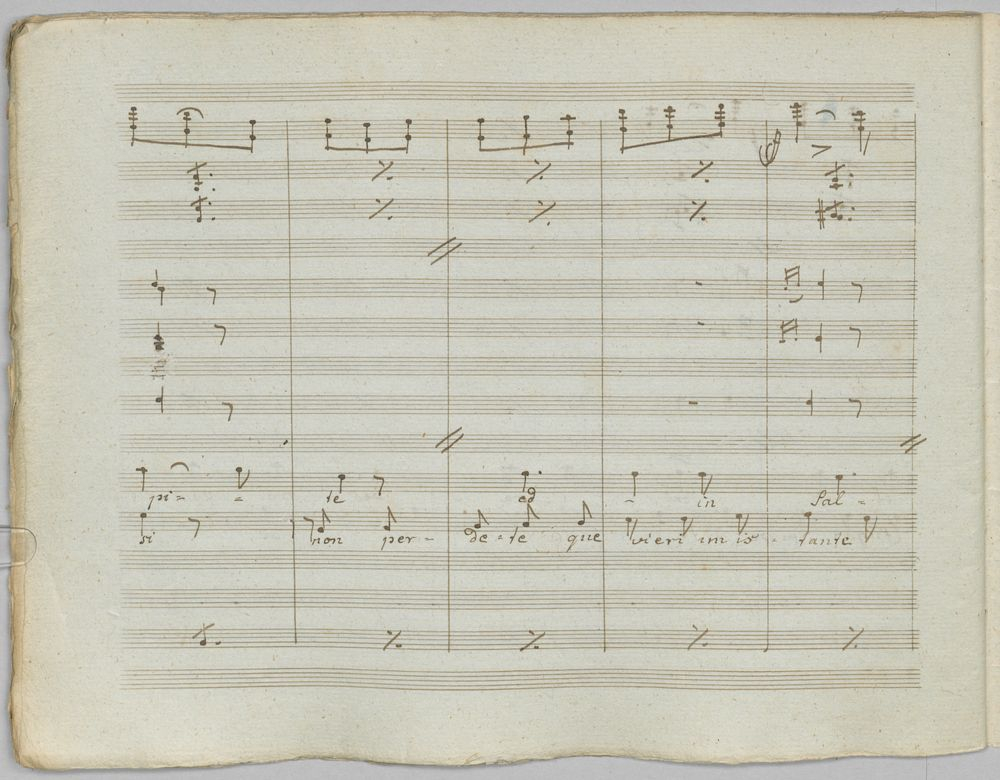 pi - - te ed - in Sal -
si non per - de - te que vieri im is - tante